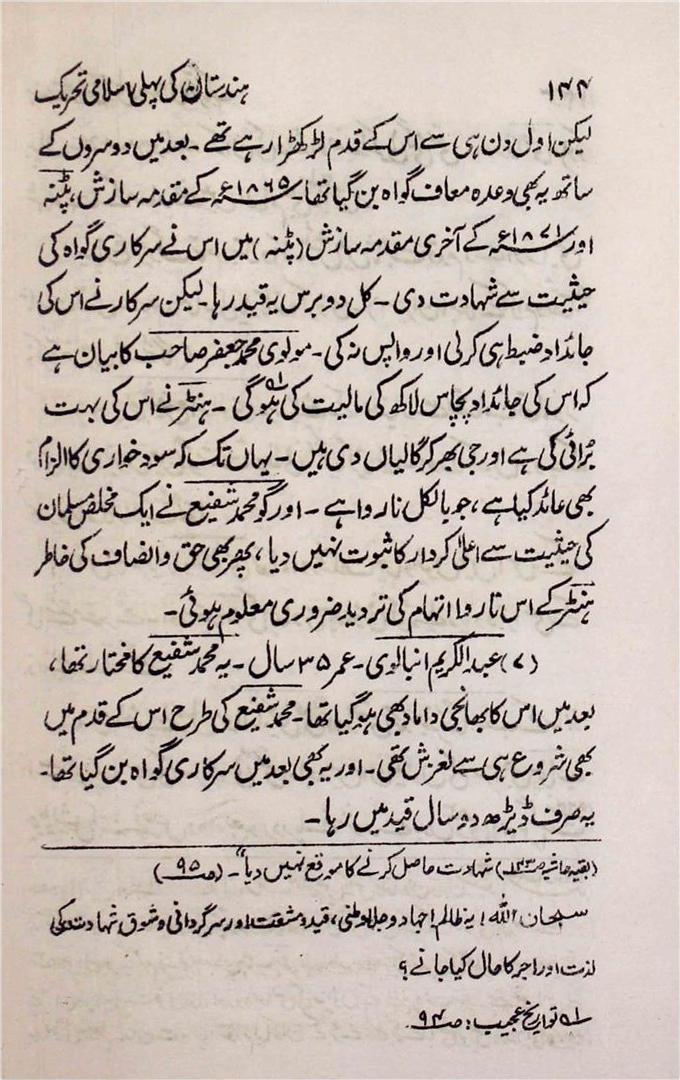 ۱۴۴ ہندستان کی پہلی اسلامی تحریک
لیکن اول دن ہی سے اس کے قدم لڑکھڑا رہے تھے ۔ بعد میں دوسروں کے
ساتھ یہ بھی وعدہ معاف گواہ بن گیا تھا ۔ ۱۸۶۵ء کے مقدمہ سازش، پٹنہ
اور ۱۸۷۱ء کے آخری مقدمہ سازش (پٹنہ) میں اس نے سرکاری گواہ کی
حیثیت سے شہادت دی ۔ کل دو برس یہ قید رہا ۔ لیکن سرکار نے اس کی
جائداد ضبط ہی کر لی اور واپس نہ کی ۔ مولوی محمد جعفر صاحب کا بیان ہے
کہ اس کی جائداد پچاس لاکھ کی مالیت کی ہوگی ۱؎ ۔ ہنٹر نے اس کی بہت
برائی کی ہے اور جی بھر کر گالیاں دی ہیں ۔ یہاں تک کہ سود خواری کا الزام
بھی عائد کیا ہے ، جو بالکل ناروا ہے ۔ اور گو محمد شفیع نے ایک مخلص مسلمان
کی حیثیت سے اعلیٰ کردار کا ثبوت نہیں دیا ، پھر بھی حق و انصاف کی خاطر
ہنٹر کے اس ناروا اتہام کی تردید ضروری معلوم ہوئی ۔
(۷) عبدالکریم انبالوی ۔ عمر ۳۵ سال ۔ یہ محمد شفیع کا مختار تھا ،
بعد میں اس کا بھانجی داماد بھی ہو گیا تھا ۔ محمد شفیع کی طرح اس کے قدم میں
بھی شروع ہی سے لغزش تھی ۔ اور یہ بھی بعد میں سرکاری گواہ بن گیا تھا ۔
یہ صرف ڈیڑھ دو سال قید میں رہا ۔
(بقیہ حاشیہ ص۱۴۳) شہادت حاصل کرنے کا موقع نہیں دیا" ۔ (ص ۹۵)
سبحان اللہ! یہ ظالم جہاد و جلاوطنی ، قید و مشقت اور سرگردانی و شوق شہادت کی
لذت اور اجر کا حال کیا جانے ؟
۱؎ تواریخ عجیب : ص ۹۴